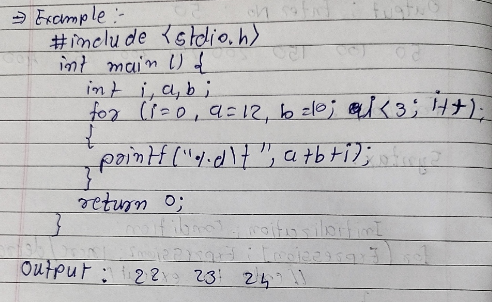 ⇒ Example :-
#include <stdio.h>
int main () {
int i, a, b ;
for (i=0, a=12, b=10; i<3; i++);
{
printf ("%d\t", a+b+i);
}
return 0;
}
Output : 22 23 24